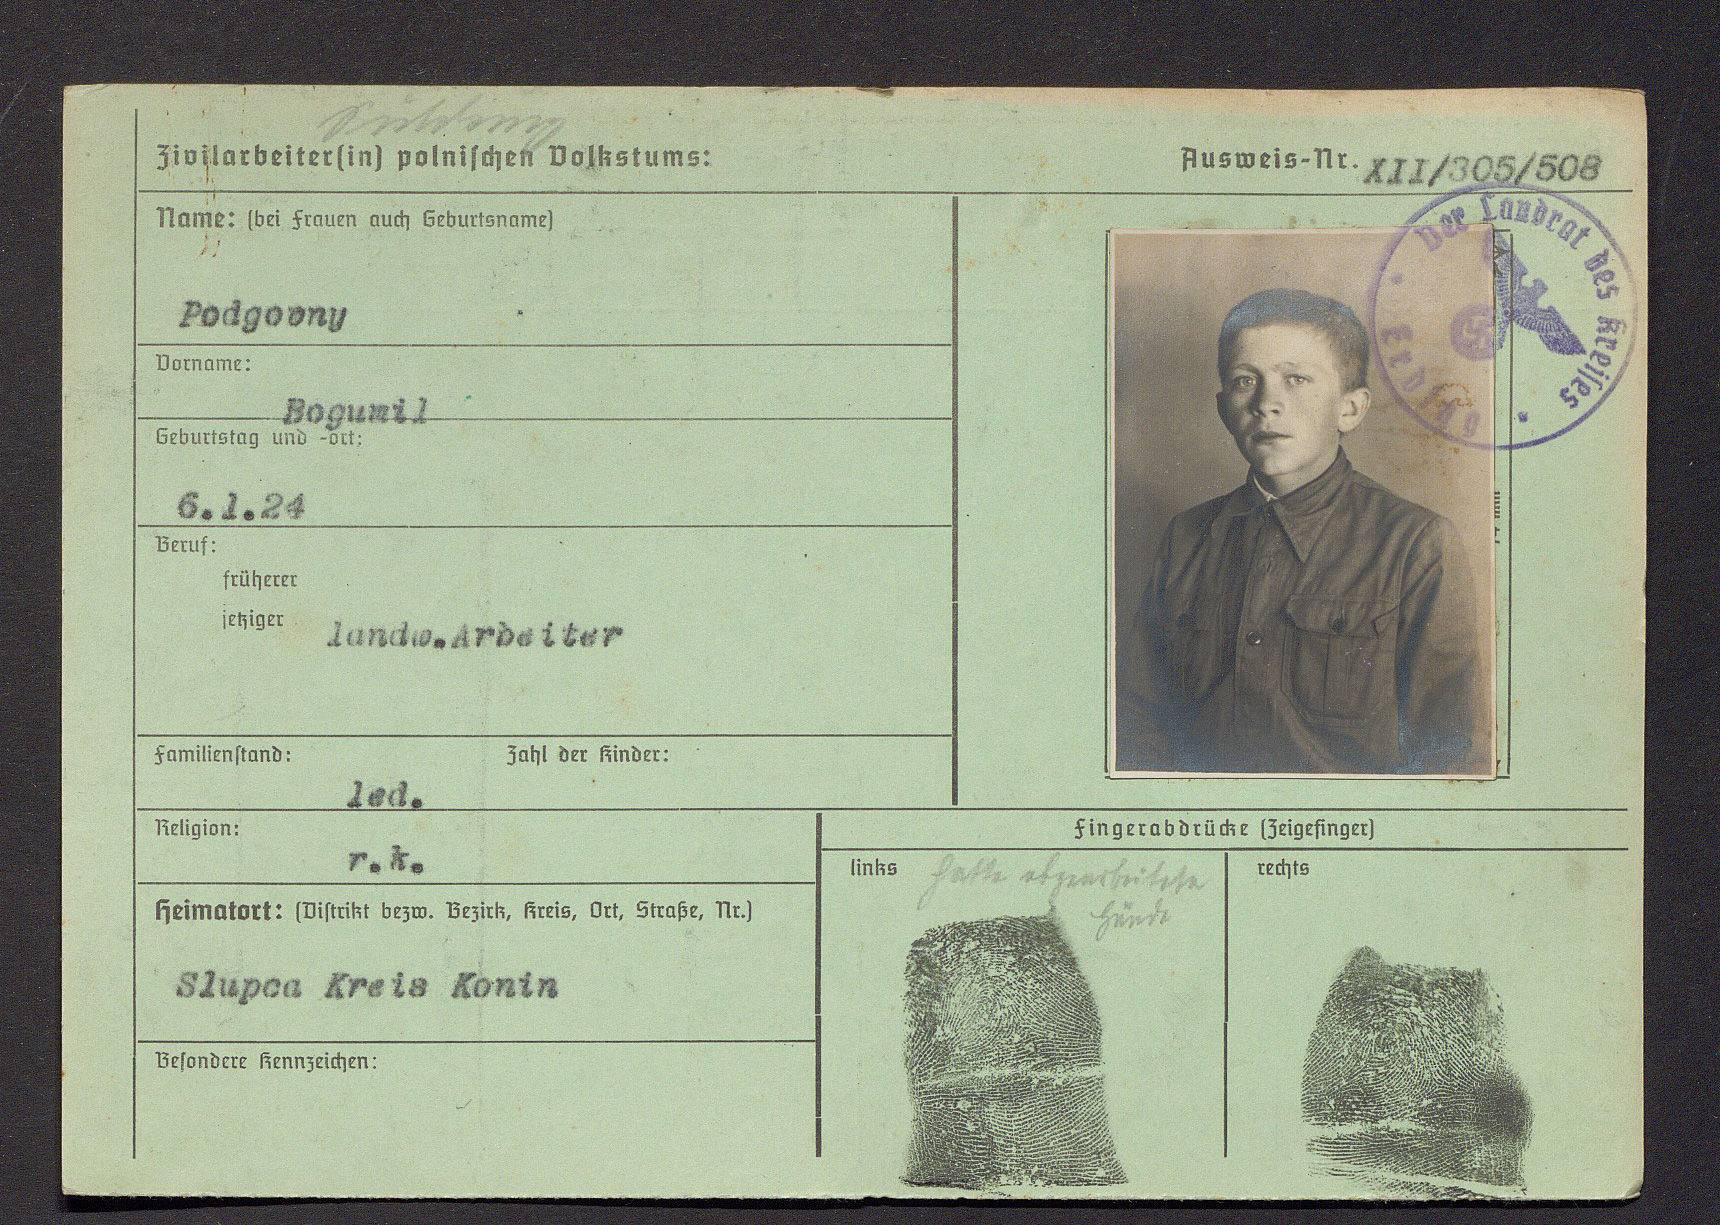 Zivilarbeiter(in) polnischen Volkstums:
Ausweis-Nr. XII/305/508
Name: (bei Frauen auch Geburtsname)
Podgovny
Vorname:
Bogumil
Geburtstag und -ort:
6.1.24
Beruf:
früherer
jetziger landw.Arbeiter
Familienstand: Zahl der Kinder:
led.
Religion:
r.k.
Heimatort: (Distrikt bezw. Bezirk, Kreis, Ort, Straße, Nr.)
Slupca Kreis Konin
Besondere Kennzeichen:
Der Landrat des Kreises
Fingerabdrücke (Zeigefinger)
links
abgearbeitete
Hände
rechts